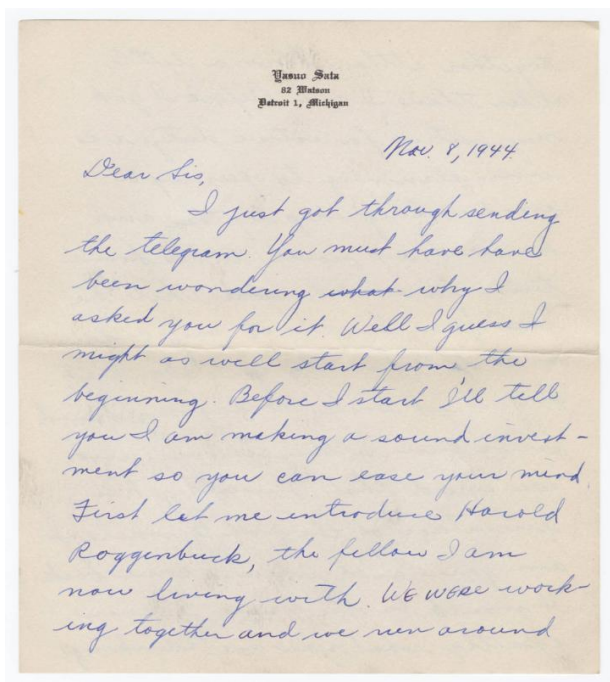 Yasuo Sata
82 Watson
Detroit 1, Michigan
Nov. 8, 1944
Dear Sis,
I just got through sending
the telegram. You must have have
been wondering what why I
asked you for it. Well I guess I
might as well start from the
beginning. Before I start I'll tell
you I am making a sound invest-
ment so you can ease your mind.
First let me introduce Harold
Roggenbuck, the fellow I am
now living with. WE WERE work-
ing together and we run around